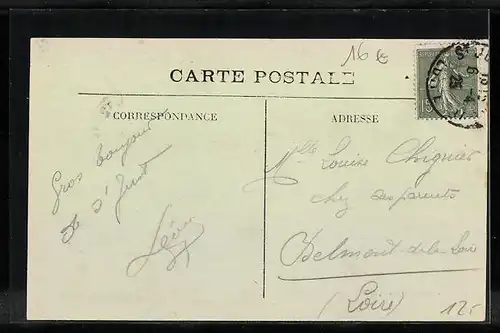 16 €
CARTE POSTALE
CORRESPONDANCE
ADRESSE
Gros bonjour
de St Just
Mlle Louise Chignier
chez ses parents
Belmont-de-la-Loire
(Loire)
12,-